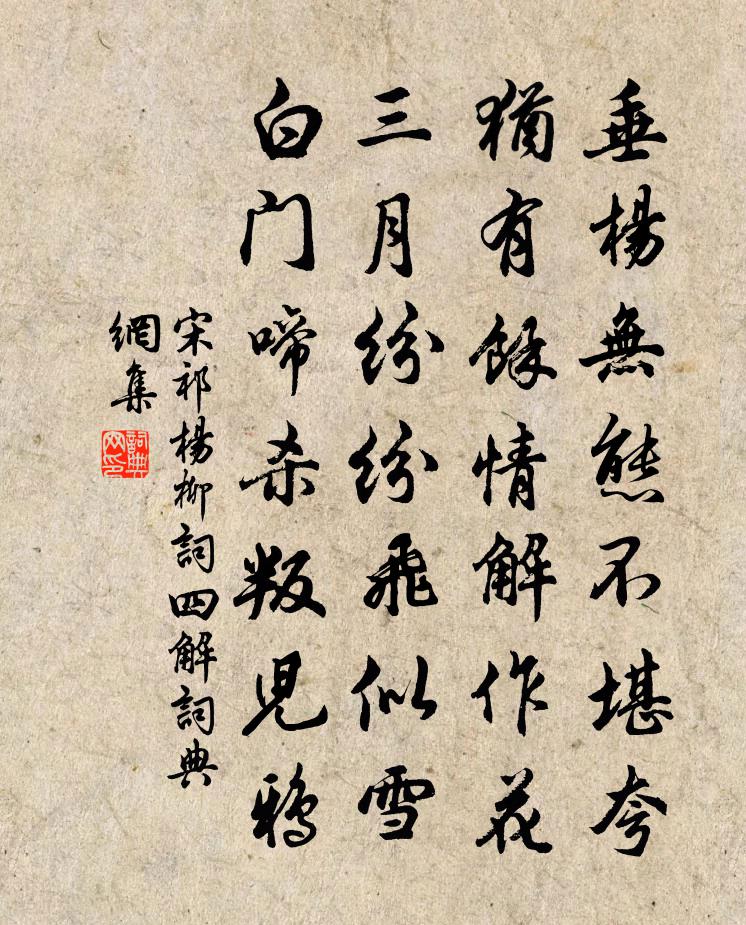 垂楊無態不堪夸
猶有餘情解作花
三月紛紛飛似雪
白门啼杀叛児鴉
宋祁楊柳詞四解詞典
網集
詞典網印